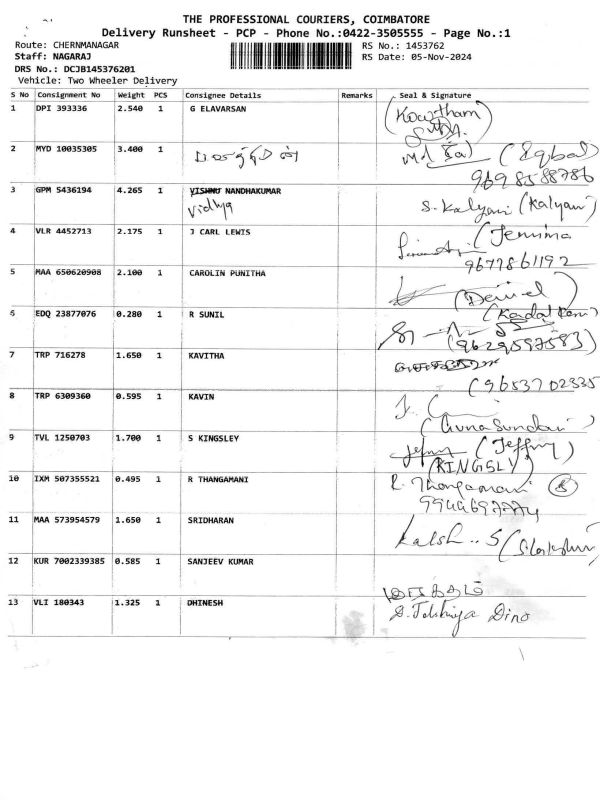 THE PROFESSIONAL COURIERS, COIMBATORE
Delivery Runsheet - PCP - Phone No.:0422-3505555 - Page No.:1
Route: CHERNMANAGAR RS No.: 1453762
Staff: NAGARAJ RS Date: 05-Nov-2024
DRS No.: DCJB145376201
Vehicle: Two Wheeler Delivery
S No Consignment No Weight PCS Consignee Details Remarks Seal & Signature
1 DPI 393336 2.540 1 G ELAVARSAN (Kowtham)
2 MYD 10035305 3.400 1 (Iqbal)
9698588786
3 GPM 5436194 4.265 1 VISHNU NANDHAKUMAR S. Kalyani (Kalyani)
Vidhya
4 VLR 4452713 2.175 1 J CARL LEWIS (Jenima
9677861192
5 MAA 650620908 2.100 1 CAROLIN PUNITHA
6 EDQ 23877076 0.280 1 R SUNIL
(9629597583)
7 TRP 716278 1.650 1 KAVITHA
(9653702335
8 TRP 6309360 0.595 1 KAVIN
(Guna Sundari)
9 TVL 1250703 1.700 1 S KINGSLEY (Jeffry)
(KINGSLY)
10 IXM 507355521 0.495 1 R THANGAMANI R. Thangamani
11 MAA 573954579 1.650 1 SRIDHARAN
12 KUR 7002339385 0.585 1 SANJEEV KUMAR
13 VLI 180343 1.325 1 DHINESH